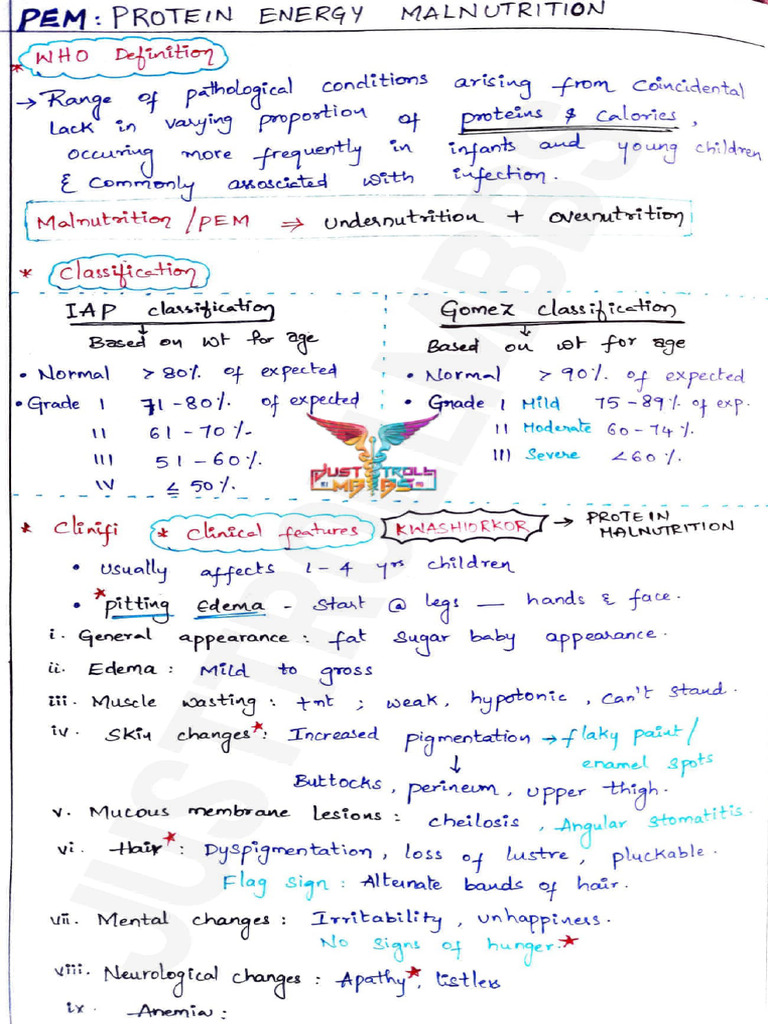 PEM: PROTEIN ENERGY MALNUTRITION
* WHO Definition
→ Range of pathological conditions arising from coincidental
lack in varying proportion of proteins & calories,
occuring more frequently in infants and young children
& commonly assosciated with infection.
Malnutrition / PEM ⇒ undernutrition + overnutrition
* Classification
IAP classification
Based on wt for age
• Normal > 80% of expected
• Grade I 71-80% of expected
II 61-70%
III 51-60%
IV ≤ 50%
Gomez classification
Based on wt for age
• Normal > 90% of expected
• Grade I Mild 75-89% of exp.
II Moderate 60-74%
III Severe <60%
JUST TROLL
MBBS
* Clinifi * Clinical features KWASHIORKOR → PROTEIN
MALNUTRITION
• usually affects 1-4 yrs children
• *pitting Edema - start @ legs — hands & face.
i. General appearance : fat sugar baby appearance.
ii. Edema : Mild to gross
iii. Muscle wasting : +nt ; weak, hypotonic, can't stand.
iv. Skin changes* : Increased pigmentation → flaky paint/
enamel spots
↓
Buttocks, perineum, upper thigh.
v. Mucous membrane lesions : cheilosis, Angular stomatitis.
vi. Hair* : Dyspigmentation, loss of lustre, pluckable.
Flag sign : Alternate bands of hair.
vii. Mental changes : Irritability, unhappiness.
No signs of hunger.*
viii. Neurological changes : Apathy*, listless
ix. Anemia :
JUSTTROLLMBBS